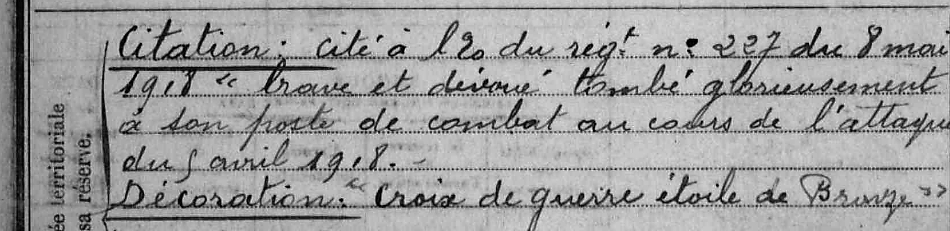 Citation: cité à l'Eo du régt n: 227 du 8 mai
1918 " brave et dévoué tombé glorieusement
à son poste de combat au cours de l'attaque
du 5 avril 1918. -
Décoration: " Croix de guerre étoile de Bronze "
ée territoriale
sa réserve.